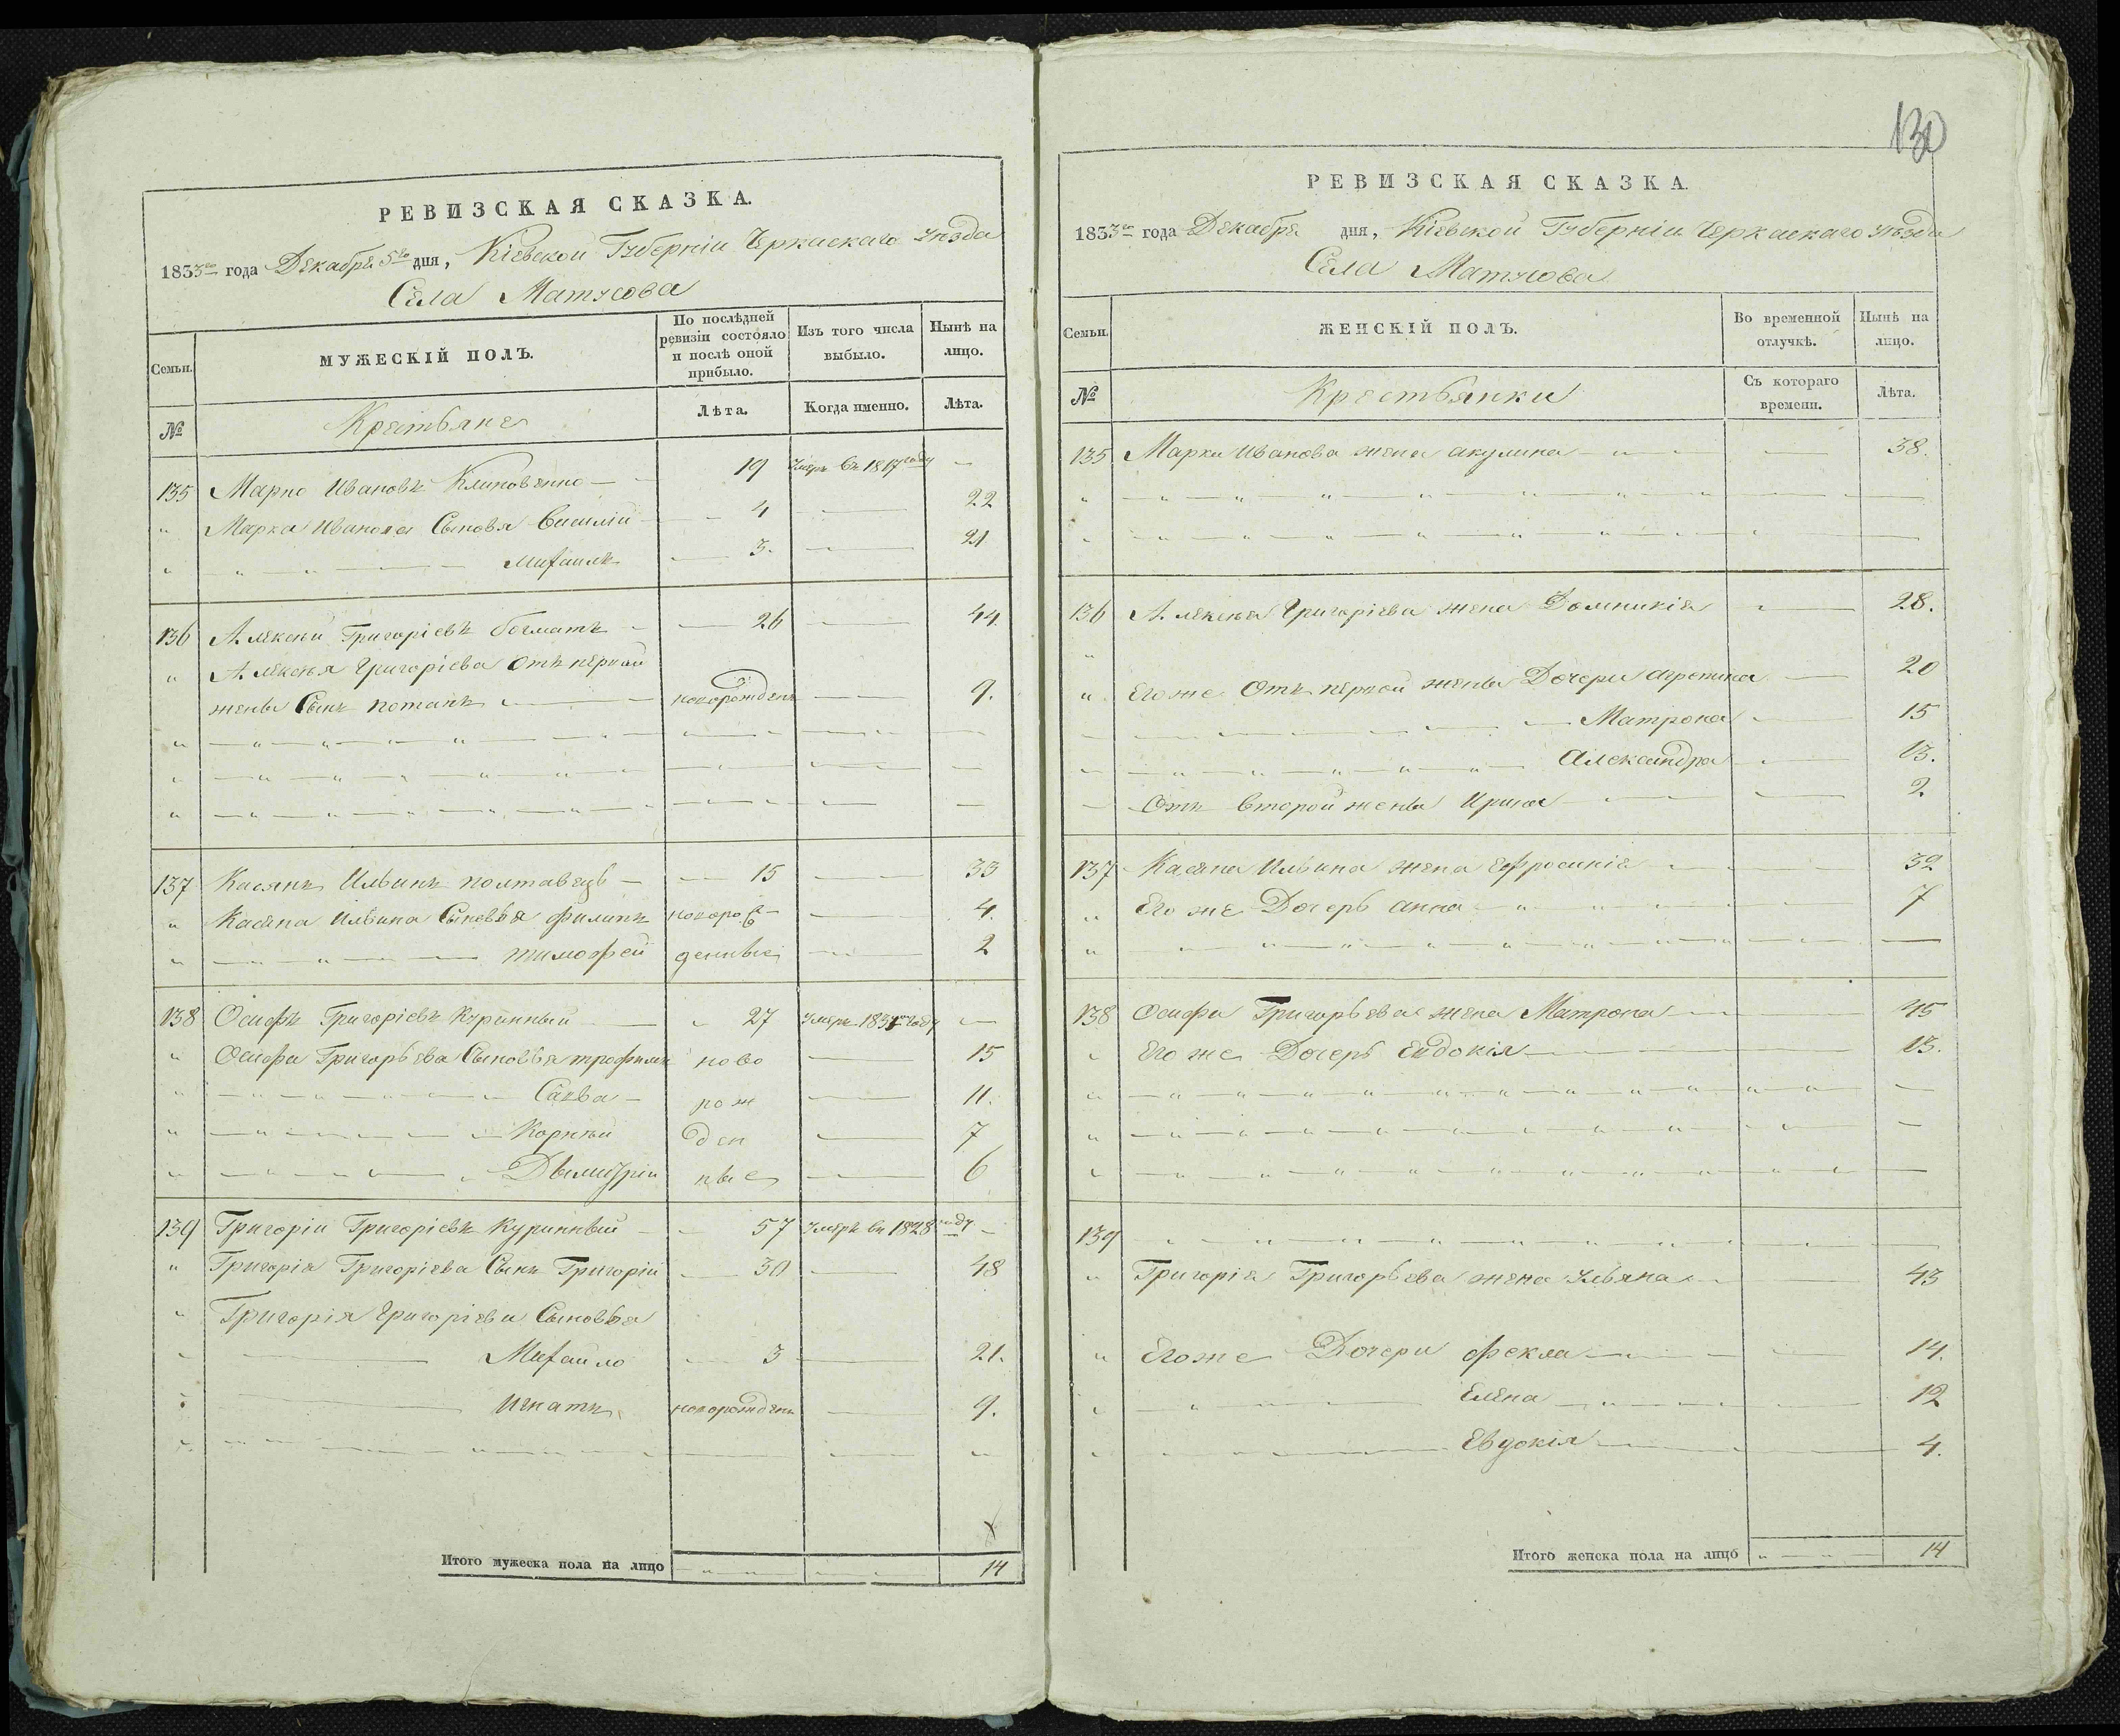 130
РЕВИЗСКАЯ СКАЗКА.
1833го года Декабря 5го дня, Кіевской Губерніи Черкаскаго уѣзда
Села Матусова
Семьи.
МУЖЕСКІЙ ПОЛЪ.
По послѣдней ревизіи состояло и послѣ оной прибыло.
Изъ того числа выбыло.
Нынѣ на лицо.
№
Крестьяне
Лѣта.
Когда именно.
Лѣта.
135 Марко Ивановъ 19 умеръ въ 1817 году
" Марка Иванова Сыновья Василій 4 22
" Михаилъ 3. 21
136 Алексѣй Григоріевъ 26 44.
" Алексѣя Григоріева отъ первой
жены Сынъ потапъ новорожденъ 9.
137 Касянъ Ильинъ полтавецъ 15 33
" Касяна Ильина Сыновья филипъ новорож 4.
" тимофей денные 2
138 Осифъ Григоріевъ Куринный 27 умеръ 1831 году
" Осифа Григорьева Сыновья трофимъ ново 15
" Савва рож 11.
" Корнѣй ден 7
" Дымитрій ные 6
139 Григорій Григоріевъ Куринный 57 умеръ въ 1828 году
" Григорія Григоріева Сынъ Григорій 30 48
" Григорія Григоріева Сыновья
Михайло 3 21.
Игнатъ новорожденъ 9.
Итого мужеска пола на лицо 14
РЕВИЗСКАЯ СКАЗКА.
1833го года Декабря дня, Кіевской Губерніи Черкаскаго уѣзда
Села Матусова
Семьи.
ЖЕНСКІЙ ПОЛЪ.
Во временной отлучкѣ.
Нынѣ на лицо.
№
Крестьянки
Съ котораго времени.
Лѣта.
135 Марка Иванова жена акулина 38.
136 Алексѣя Григоріева жена Домникія 28.
" Егоже отъ первой жены Дочери 20
Матрона 15
Александра 13.
Отъ второй жены Ирина 2.
137 Касяна Ильина жена Ефросинія 32
" Его же Дочерь анна 7
138 Осифа Григорьева жена Матрона 45
" Его же Дочерь Евдокія 13.
139
" Григорія Григорьева жена Ульяна 43
" Егоже Дочери фекла 14.
Елена 12
Евдокія 4.
Итого женска пола на лицо 14